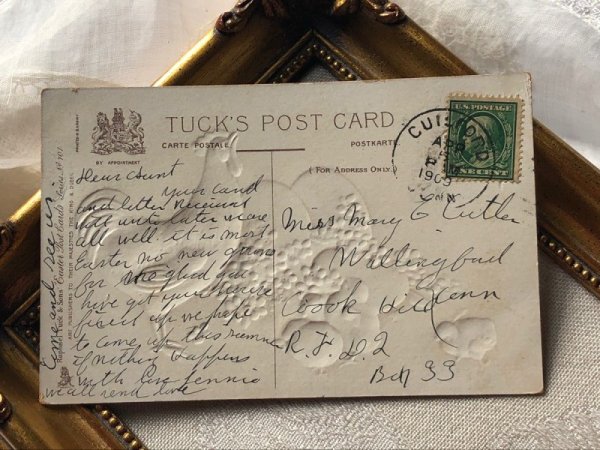 TUCK'S POST CARD
CARTE POSTALE
POSTKARTE
( FOR ADDRESS ONLY.)
BY APPOINTMENT
Raphael Tuck & Sons' Easter Post Cards Series No 101
ART PUBLISHERS TO THEIR MAJESTIES THE KING & QUEEN
U.S. POSTAGE
ONE CENT
1909
Dear Aunt
your Card
and letter
will write later we are
all well. it is most
Easter no new
for glad you
have got your house
fixed up we hope
to come up this
if nothing happens
with love Jennie
we all send love
Come and see us
Miss Mary E Cutler
Wallingford
Cook Hill Conn
R. F. D. 2
Box 33